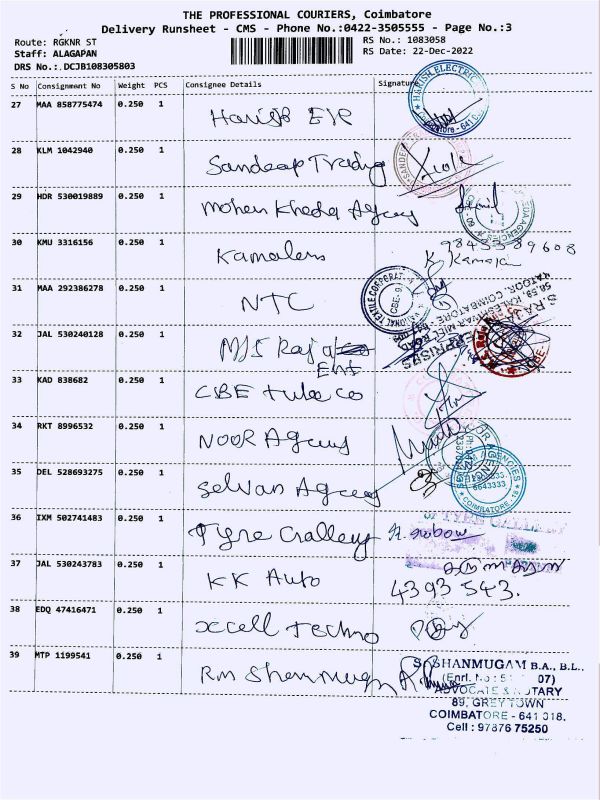 THE PROFESSIONAL COURIERS, Coimbatore
Delivery Runsheet - CMS - Phone No.:0422-3505555 - Page No.:3
Route: RGKNR ST
RS No.: 1083058
Staff: ALAGAPAN
RS Date: 22-Dec-2022
DRS No.: DCJB108305803
S No Consignment No Weight PCS Consignee Details Signature
HARISH ELECTRIC
27 MAA 858775474 0.250 1 Harish Ele
Coimbatore - 641 0
28 KLM 1042940 0.250 1 Sandeap Trading
29 HDR 530019889 0.250 1 Mohan Kheda Agency
30 KMU 3316156 0.250 1 Kamalens
9843389608
K. Kamajai
31 MAA 292386278 0.250 1 NTC
NATIONAL TEXTILE CORPORATION
CBE-9
32 JAL 530240128 0.250 1 M/S Raja
Ent
33 KAD 838682 0.250 1 CBE tube co
34 RKT 8996532 0.250 1 NOOR Agency
35 DEL 528693275 0.250 1 Selvan Agency
COIMBATORE - 18
36 IXM 502741483 0.250 1 Tyre Gallery
37 JAL 530243783 0.250 1 KK Auto
4393543.
38 EDQ 47416471 0.250 1 xcell techno
39 MTP 1199541 0.250 1 Rm Shanmugm
S. SHANMUGAM B.A., B.L.,
(Enrl. No : 07)
ADVOCATE & NOTARY
89, GREY TOWN
COIMBATORE - 641 018.
Cell : 97876 75250